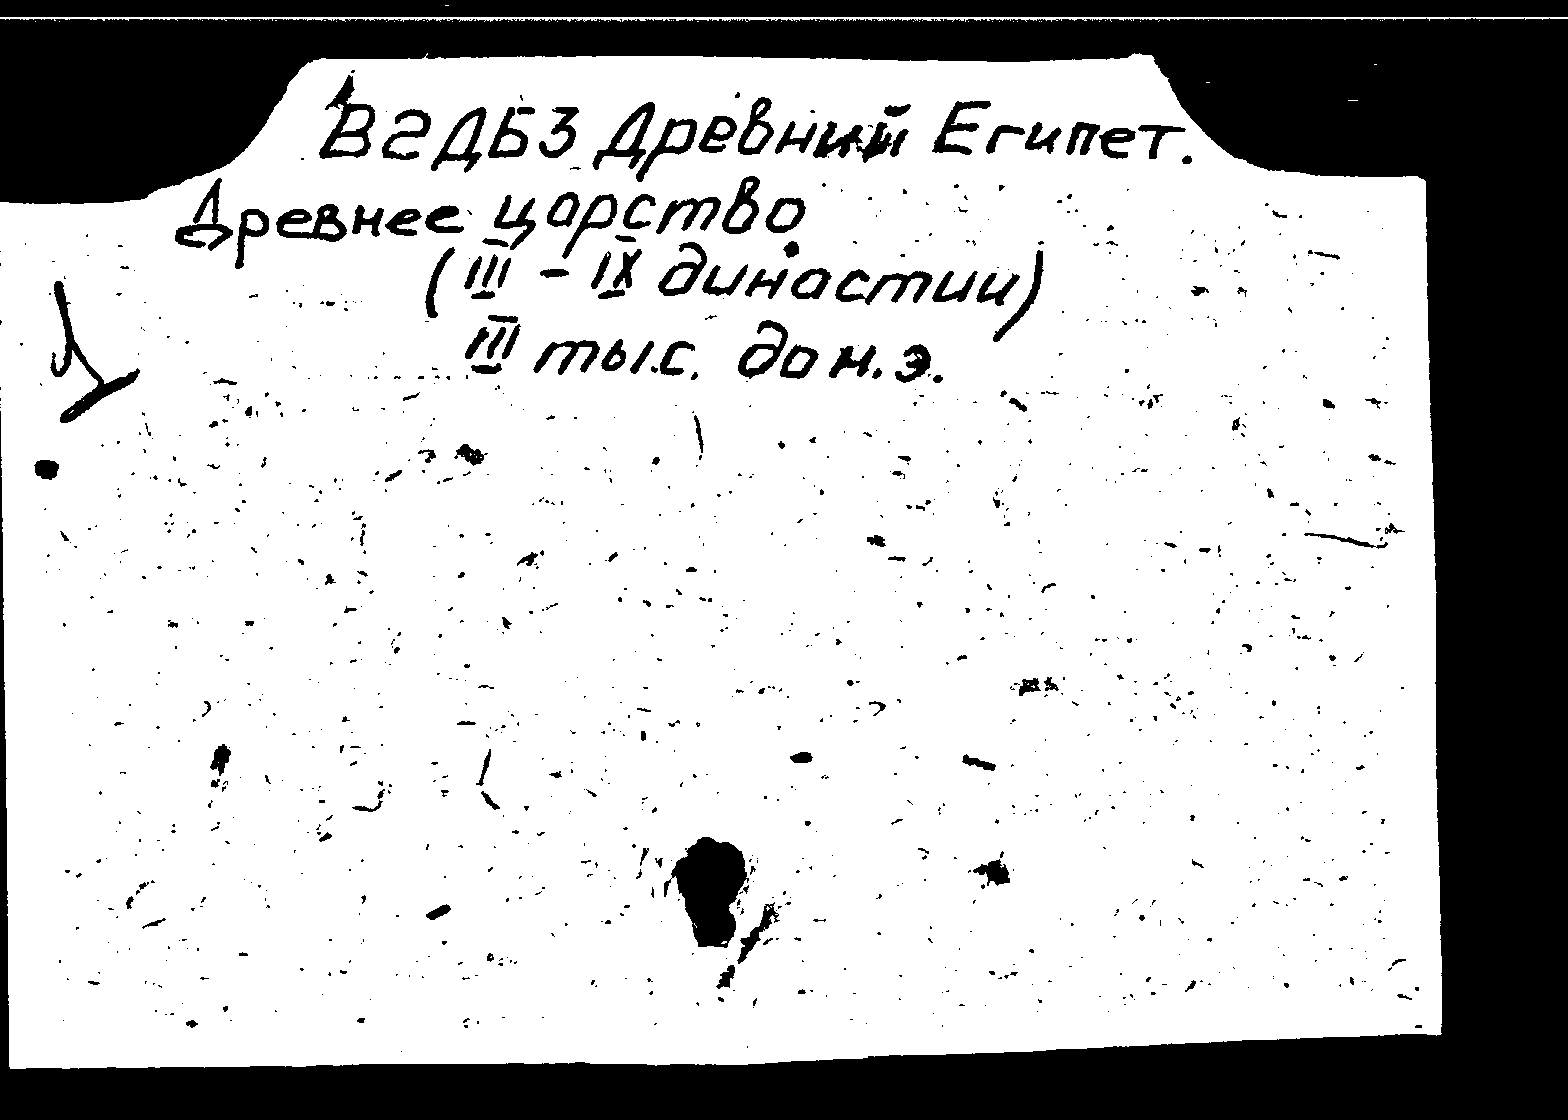 ВгДБ3 Древний Египет.
Древнее царство.
(III - IX династии)
III тыс. до н.э.